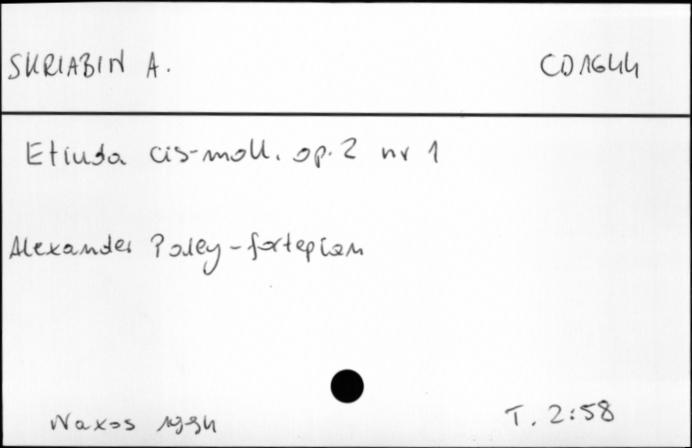 SKRIABIN A. CD1644
Etiuda cis-moll. op. 2 nr 1
Alexander Paley - fortepian
Naxos 1994 T. 2:58